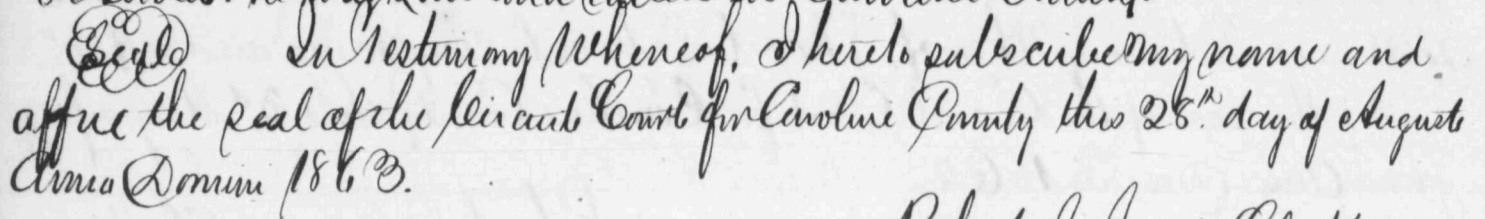 Seal In Testimony Whereof, I hereto subscribe my name and
affix the seal of the Circuit Court for Caroline County this 28th day of August
Anno Domini 1863.